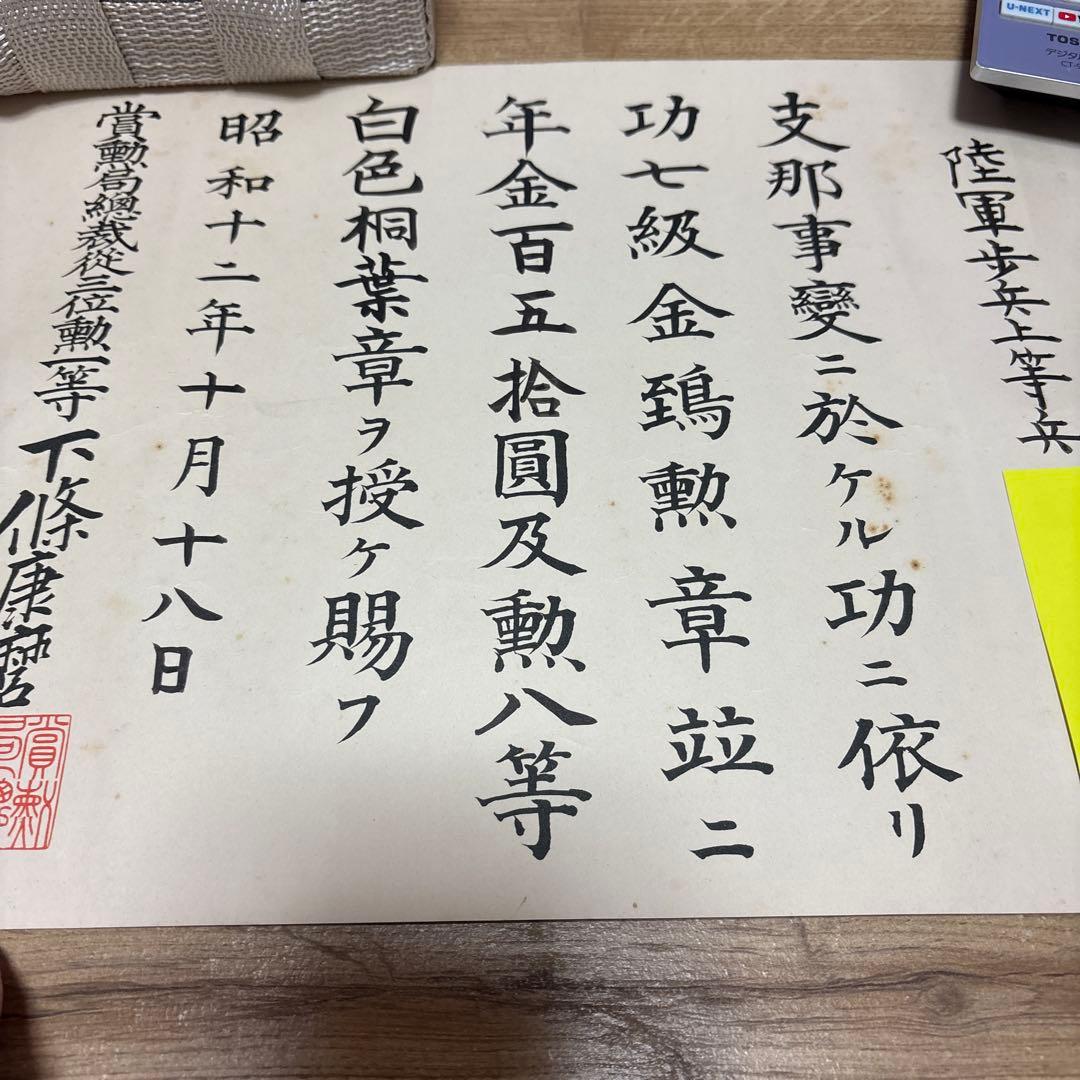 陸軍歩兵上等兵
支那事變ニ於ケル功ニ依リ
功七級金鵄勲章竝ニ
年金百五拾圓及勲八等
白色桐葉章ヲ授ケ賜フ
昭和十二年十月十八日
賞勲局總裁從三位勲一等下條康麿
U-NEXT
TOS
デジタ